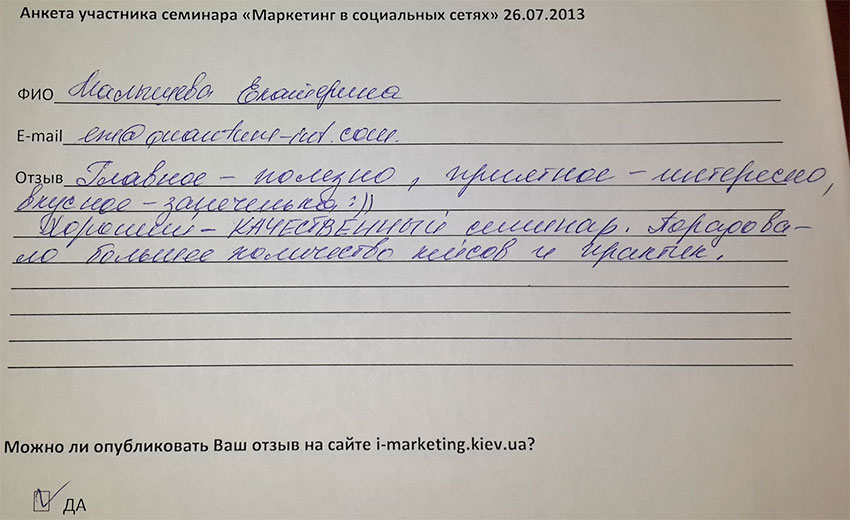 Анкета участника семинара «Маркетинг в социальных сетях» 26.07.2013
ФИО Малышева Екатерина
E-mail em@quantum-int.com.
Отзыв Главное – полезно, приятное – интересно,
вкусное – зацепенька :))
Хороший – КАЧЕСТВЕННЫЙ семинар. Порадова-
ло большее количество кейсов и практик.
Можно ли опубликовать Ваш отзыв на сайте i-marketing.kiev.ua?
ДА